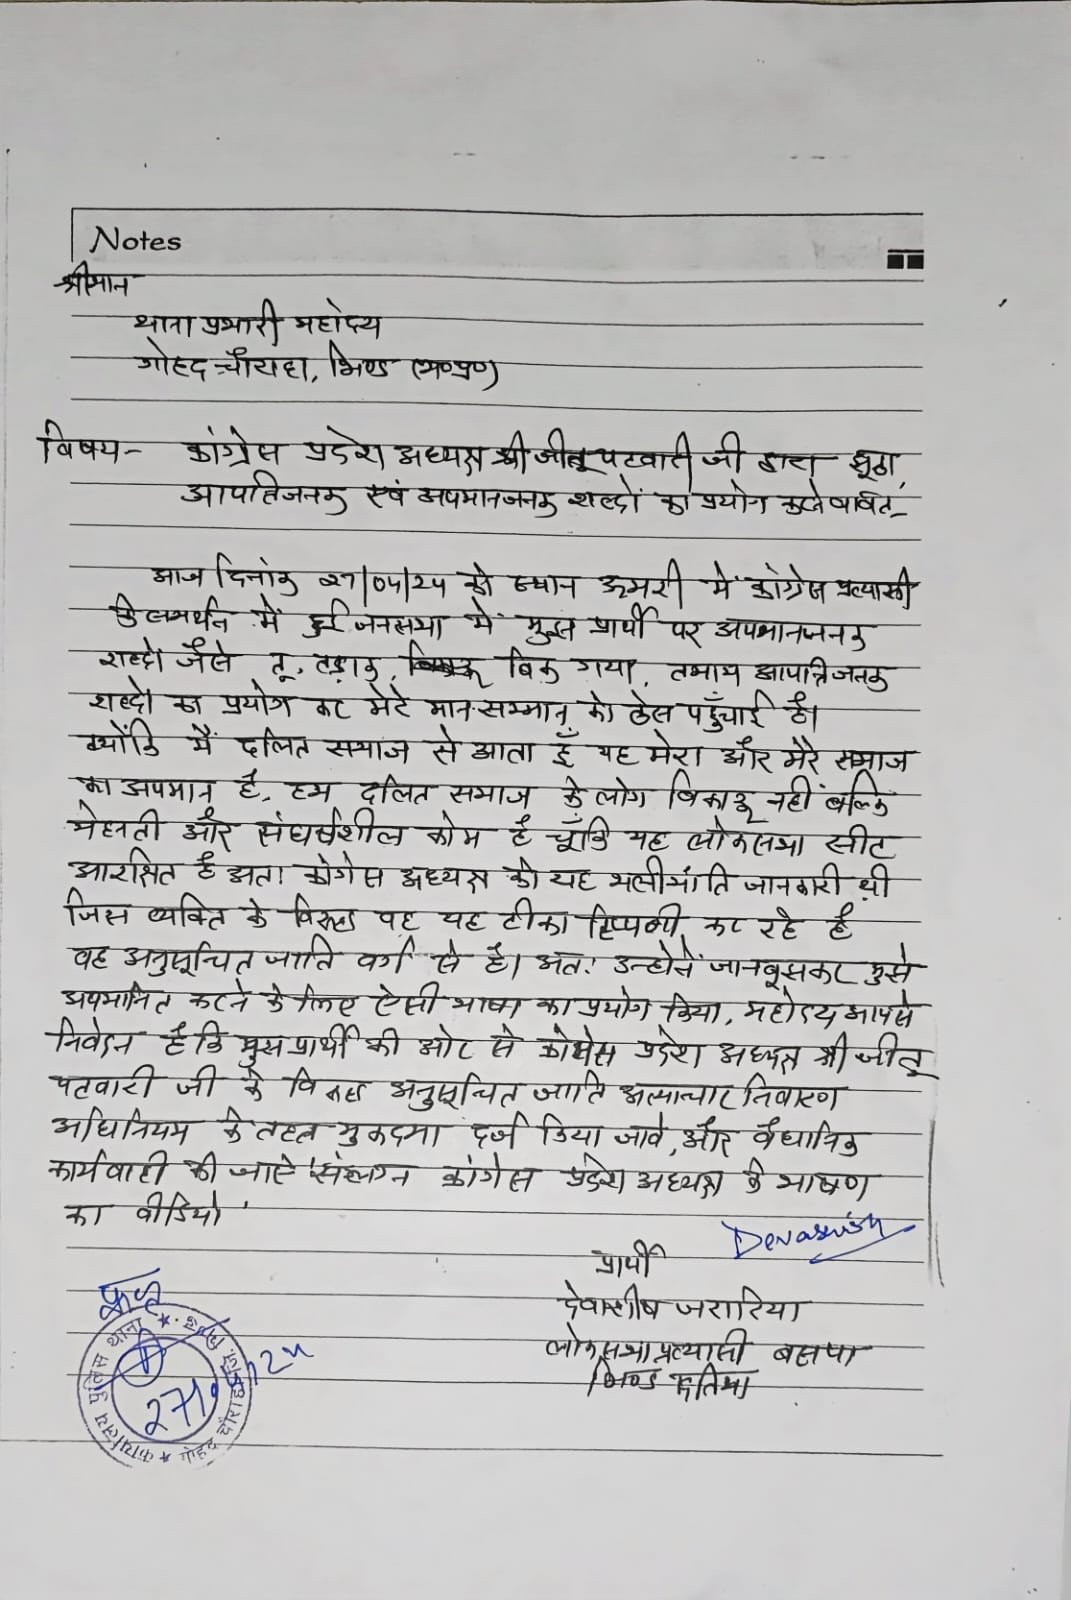 Notes
श्रीमान
थाना प्रभारी महोदय
गोहद चौराहा, भिण्ड (म०प्र०)
विषय- कांग्रेस प्रदेश अध्यक्ष श्री जीतू पटवारी जी द्वारा झूठा,
आपत्तिजनक एवं अपमानजनक शब्दों का प्रयोग करने बावत-
आज दिनांक 27/04/24 को स्थान ऊमरी में कांग्रेस प्रत्याशी
के समर्थन में हुई जनसभा में मुझ प्रार्थी पर अपमानजनक
शब्दों जैसे तू, तड़ाक, बिक गया, तमाम आपत्तिजनक
शब्दों का प्रयोग कर मेरे मान-सम्मान को ठेस पहुँचाई है।
क्योंकि मैं दलित समाज से आता हूँ यह मेरा और मेरे समाज
का अपमान है, हम दलित समाज के लोग बिकाऊ नहीं बल्कि
मेहनती और संघर्षशील कोम है चूँकि यह लोकसभा सीट
आरक्षित है अतः कांग्रेस अध्यक्ष को यह भलीभांति जानकारी थी
जिस व्यक्ति के विरुद्ध वह यह टीका टिप्पणी कर रहे है
वह अनुसूचित जाति वर्ग से है। अतः उन्होनें जानबूझकर मुझे
अपमानित करने के लिए ऐसी भाषा का प्रयोग किया, महोदय आपसे
निवेदन है कि मुझ प्रार्थी की ओर से कांग्रेस प्रदेश अध्यक्ष श्री जीतू
पटवारी जी के विरुद्ध अनुसूचित जाति अत्याचार निवारण
अधिनियम के तहत मुकदमा दर्ज किया जावे, और वैधानिक
कार्यवाही की जाऐ 'संलग्न कांग्रेस प्रदेश अध्यक्ष के भाषण
का वीडियो'
Devashish
प्रार्थी
देवाशीष जरारिया
लोकसभा प्रत्याशी बसपा
भिण्ड दतिया
कार्यालय पुलिस थाना
गोहद चौराहा